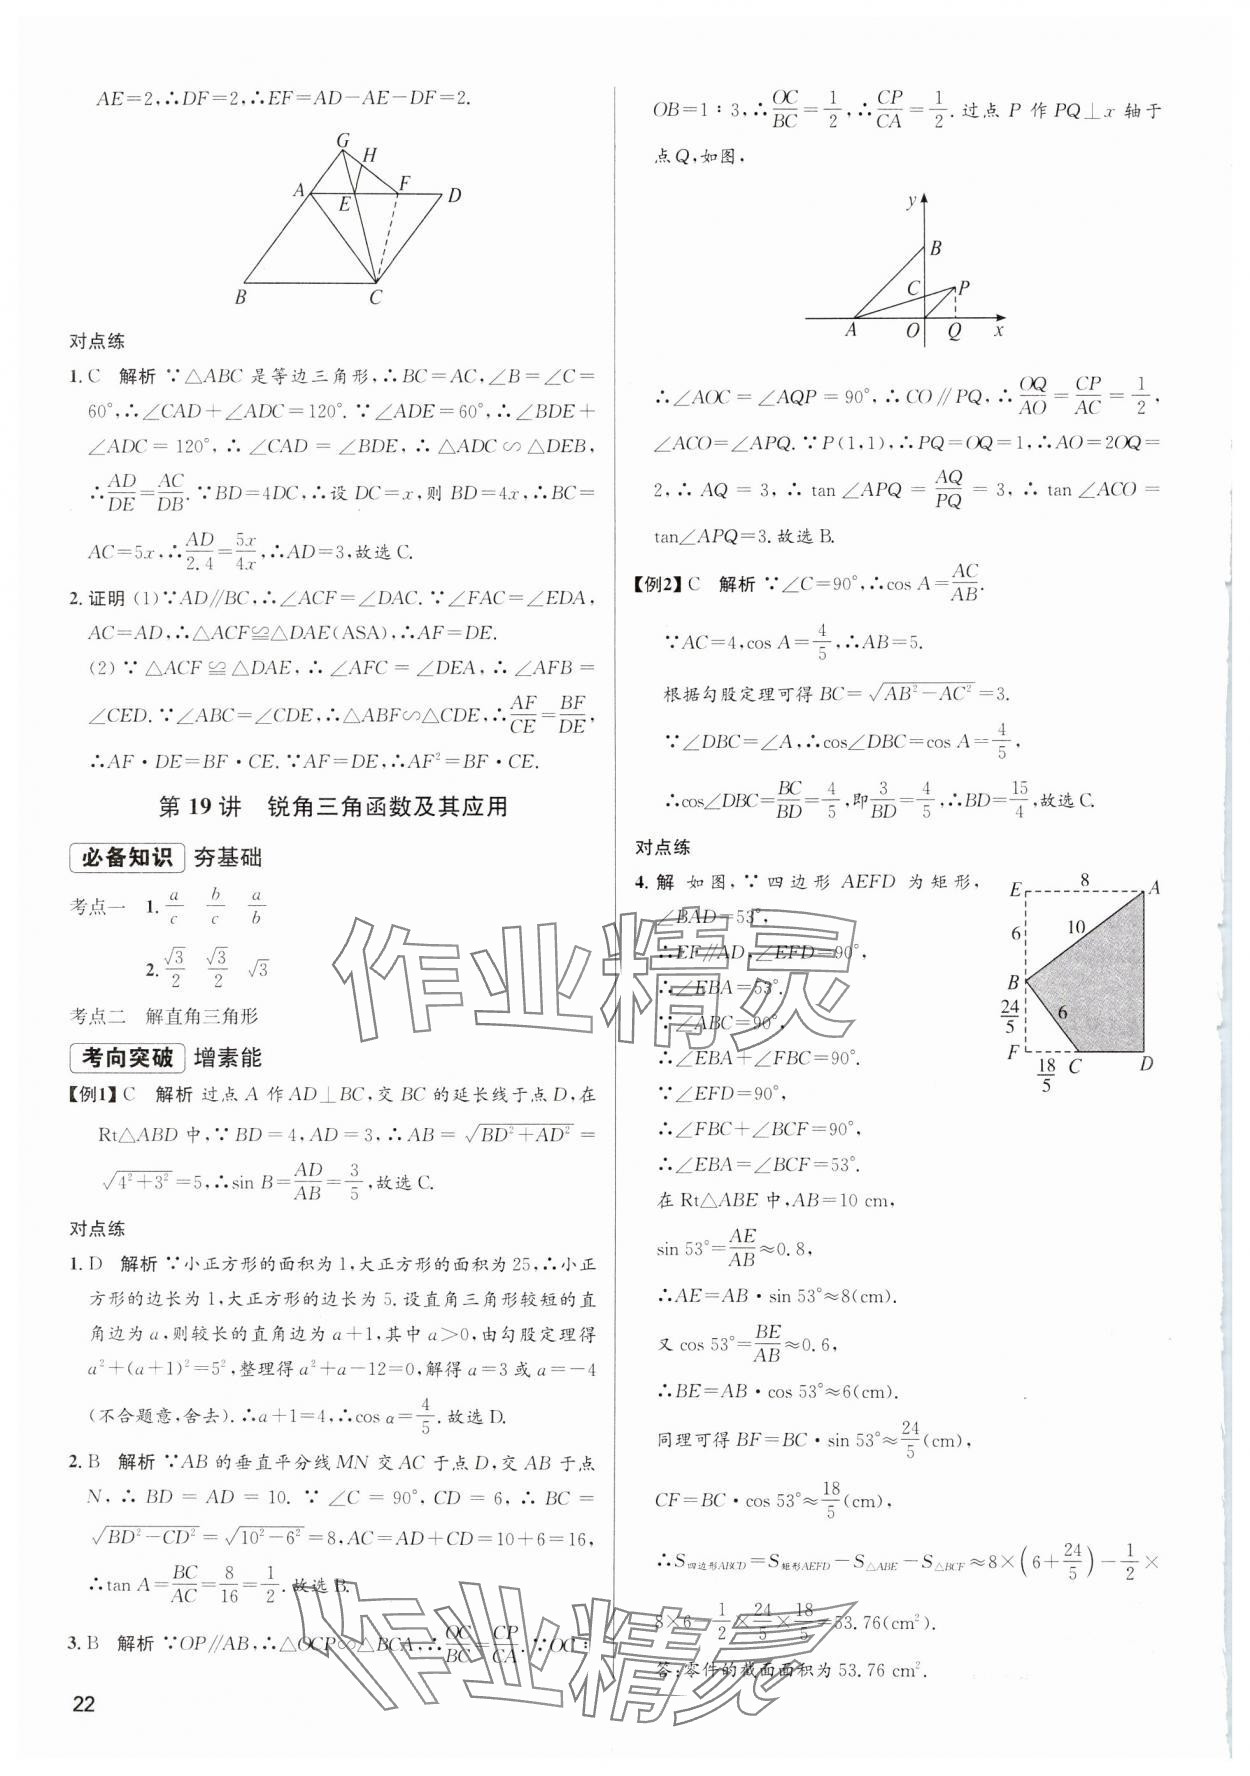 AE=2,∴DF=2,∴EF=AD-AE-DF=2.
G
H
A
F
D
E
B
C
对点练
1. C 解析 ∵△ABC 是等边三角形,∴BC=AC,∠B=∠C=
60°,∴∠CAD+∠ADC=120°.∵∠ADE=60°,∴∠BDE+
∠ADC=120°,∴∠CAD=∠BDE,∴△ADC∽△DEB,
∴AD/DE=AC/DB.∵BD=4DC,∴设 DC=x,则 BD=4x,∴BC=
AC=5x,∴AD/2.4=5x/4x,∴AD=3,故选 C.
2. 证明 (1)∵AD∥BC,∴∠ACF=∠DAC.∵∠FAC=∠EDA,
AC=AD,∴△ACF≌△DAE(ASA),∴AF=DE.
(2)∵△ACF≌△DAE,∴∠AFC=∠DEA,∴∠AFB=
∠CED.∵∠ABC=∠CDE,∴△ABF∽△CDE,∴AF/CE=BF/DE,
∴AF·DE=BF·CE.∵AF=DE,∴AF²=BF·CE.
第 19 讲 锐角三角函数及其应用
必备知识 夯基础
考点一 1. a/c b/c a/b
2. √3/2 √3/2 √3
考点二 解直角三角形
考向突破 增素能
【例1】C 解析 过点 A 作 AD⊥BC,交 BC 的延长线于点 D,在
Rt△ABD 中,∵BD=4,AD=3,∴AB=√(BD²+AD²)=
√(4²+3²)=5,∴sin B=AD/AB=3/5,故选 C.
对点练
1. D 解析 ∵小正方形的面积为 1,大正方形的面积为 25,∴小正
方形的边长为 1,大正方形的边长为 5.设直角三角形较短的直
角边为 a,则较长的直角边为 a+1,其中 a>0,由勾股定理得
a²+(a+1)²=5²,整理得 a²+a-12=0,解得 a=3 或 a=-4
(不合题意,舍去).∴a+1=4,∴cos α=4/5.故选 D.
2. B 解析 ∵AB 的垂直平分线 MN 交 AC 于点 D,交 AB 于点
N,∴BD=AD=10.∵∠C=90°,CD=6,∴BC=
√(BD²-CD²)=√(10²-6²)=8,AC=AD+CD=10+6=16,
∴tan A=BC/AC=8/16=1/2.故选 B.
3. B 解析 ∵OP∥AB,∴△OCP∽△BCA,∴OC/BC=CP/CA.∵OC:
22
OB=1:3,∴OC/BC=1/2,∴CP/CA=1/2.过点 P 作 PQ⊥x 轴于
点 Q,如图,
y
B
C
P
A
O
Q
x
∴∠AOC=∠AQP=90°,∴CO∥PQ,∴OQ/AO=CP/AC=1/2,
∠ACO=∠APQ.∵P(1,1),∴PQ=OQ=1,∴AO=2OQ=
2,∴AQ=3,∴tan∠APQ=AQ/PQ=3,∴tan∠ACO=
tan∠APQ=3.故选 B.
【例2】C 解析 ∵∠C=90°,∴cos A=AC/AB.
∵AC=4,cos A=4/5,∴AB=5.
根据勾股定理可得 BC=√(AB²-AC²)=3.
∵∠DBC=∠A,∴cos∠DBC=cos A=4/5,
∴cos∠DBC=BC/BD=4/5,即3/BD=4/5,∴BD=15/4,故选 C.
对点练
4. 解 如图,∵四边形 AEFD 为矩形,
∠BAD=53°,
∴EF∥AD,∠EFD=90°,
∴∠EBA=53°.
∵∠ABC=90°,
∴∠EBA+∠FBC=90°.
∵∠EFD=90°,
∴∠FBC+∠BCF=90°,
∴∠EBA=∠BCF=53°.
在 Rt△ABE 中,AB=10 cm,
sin 53°=AE/AB≈0.8,
∴AE=AB·sin 53°≈8(cm).
又 cos 53°=BE/AB≈0.6,
∴BE=AB·cos 53°≈6(cm).
同理可得 BF=BC·sin 53°≈24/5(cm),
CF=BC·cos 53°≈18/5(cm),
∴S四边形ABCD=S矩形AEFD-S△ABE-S△BCF≈8×(6+24/5)-1/2×
8×6-1/2×24/5×18/5=53.76(cm²).
答:零件的截面面积为 53.76 cm².
E
8
A
6
10
B
24/5
6
F
18/5
C
D
作业精灵
作业精灵